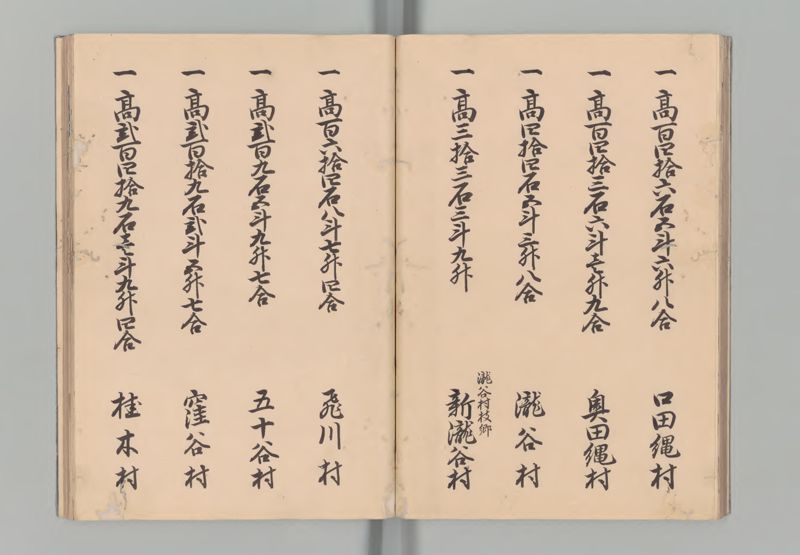 一 高百四拾六石五斗六升八合 口田縄村
一 高百四拾三石六斗壱升九合 奥田縄村
一 高四拾四石五斗三升八合 瀧谷村
一 高三拾三石三斗九升 瀧谷村枝郷 新瀧谷村
一 高百六拾四石八斗七升四合 飛川村
一 高弐百九石五斗九升七合 五十谷村
一 高弐百拾九石弐斗五升七合 窪谷村
一 高弐百四拾九石壱斗九升四合 桂木村